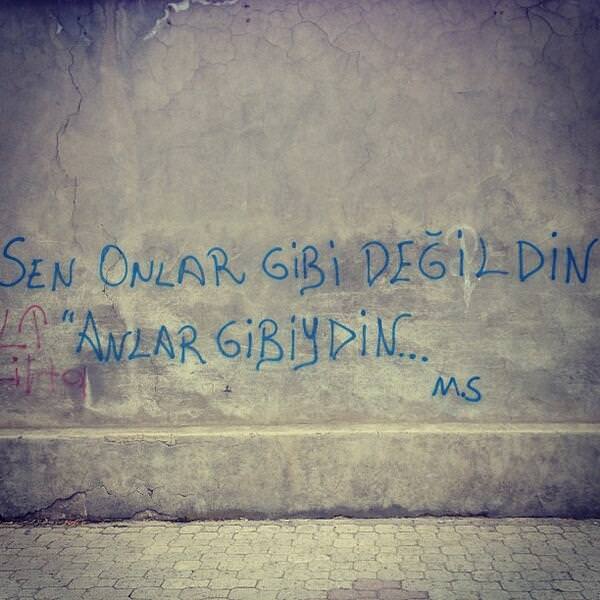 SEN ONLAR GiBi DEĞiLDiN
"ANLAR GiBiYDiN...
M.S